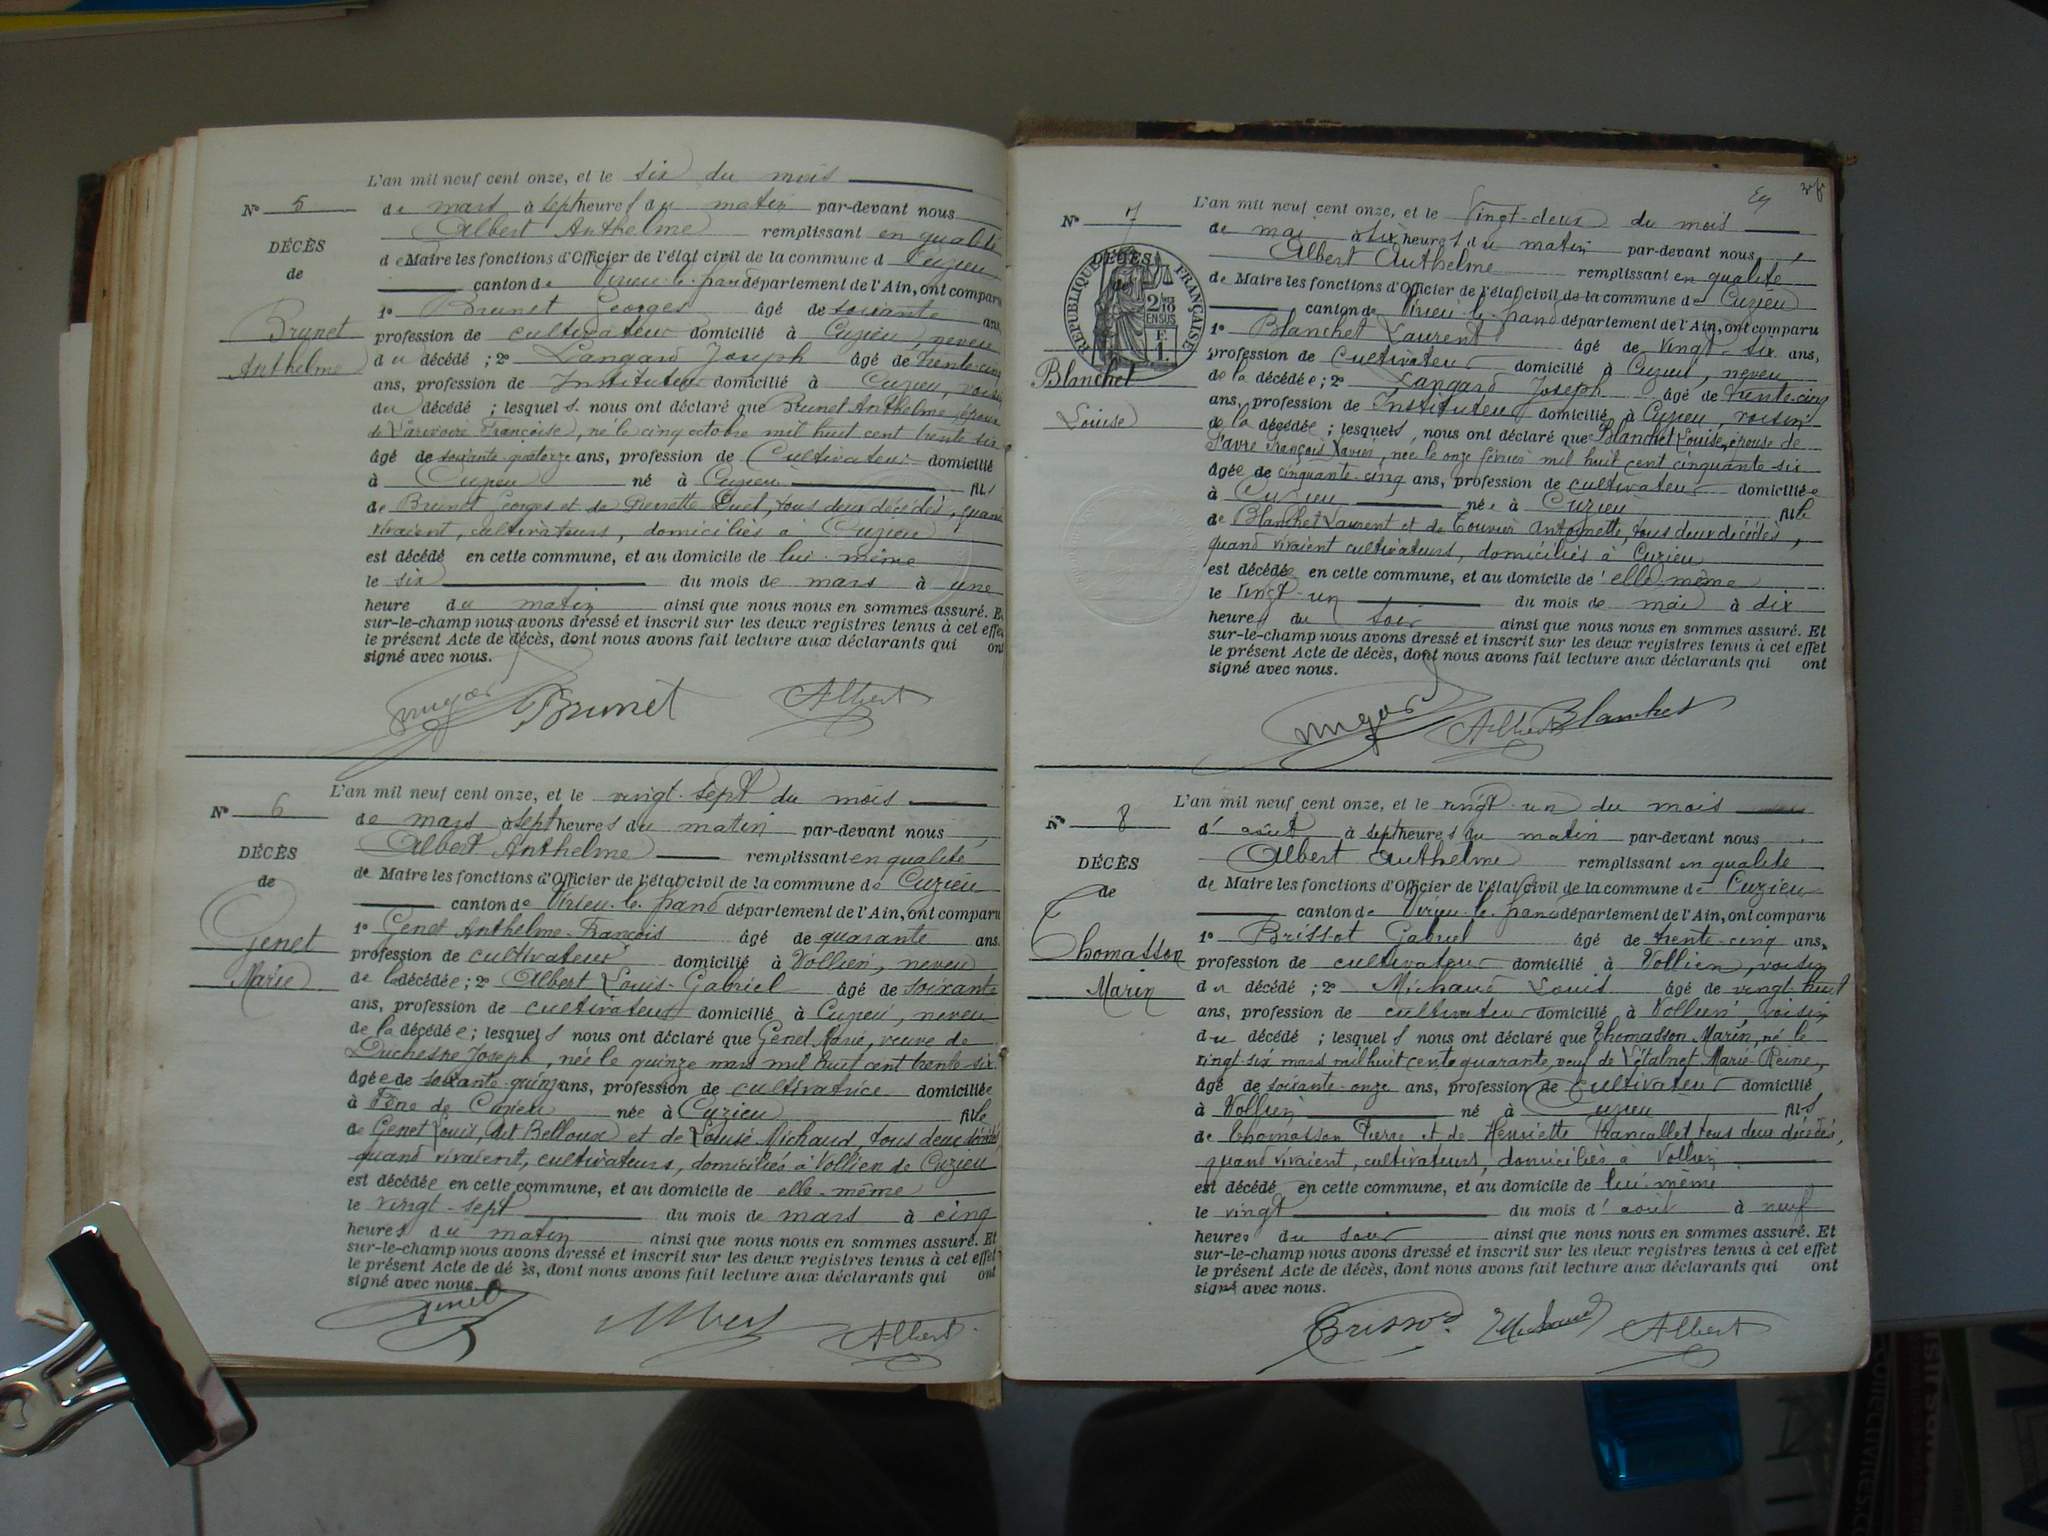 L'an mil neuf cent onze, et le six du mois
N° 5
de mars à sept heures du matin par-devant nous
Albert Anthelme remplissant en qualité
DÉCÈS
de Maire les fonctions d'Officier de l'état civil de la commune d Cuzieu
de
canton de Virieu-le-grand département de l'Ain, ont comparu
1° Brunet Georges âgé de soixante ans,
Brunet
profession de cultivateur domicilié à Cuzieu, neveu
Anthelme
du décédé ; 2° Langard Joseph âgé de trente-cinq
ans, profession de Instituteur domicilié à Cuzieu, voisin
du décédé ; lesquels nous ont déclaré que Brunet Anthelme, époux
de Larivoire Françoise, né le cinq octobre mil huit cent trente six
âgé de soixante-quatorze ans, profession de Cultivateur domicilié
à Cuzieu né à Cuzieu fils
de Brunet Georges et de Pierrette Duet, tous deux décédés, quand
vivaient, cultivateurs, domiciliés à Cuzieu
est décédé en cette commune, et au domicile de lui-même
le six du mois de mars à une
heure du matin ainsi que nous nous en sommes assuré. Et
sur-le-champ nous avons dressé et inscrit sur les deux registres tenus à cet effet
le présent Acte de décès, dont nous avons fait lecture aux déclarants qui ont
signé avec nous.
Brunet Albert
L'an mil neuf cent onze, et le vingt-sept du mois
N° 6
de mars à sept heures du matin par-devant nous
Albert Anthelme remplissant en qualité
DÉCÈS
de Maire les fonctions d'Officier de l'état civil de la commune de Cuzieu
de
canton de Virieu-le-grand département de l'Ain, ont comparu
1° Genet Anthelme-François âgé de quarante ans.
Genet
profession de cultivateur domicilié à Vollien, neveu
Marie
de la décédée ; 2° Albert Louis-Gabriel âgé de soixante
ans, profession de cultivateur domicilié à Cuzieu, neveu
de la décédée ; lesquels nous ont déclaré que Genet Marie, veuve de
Duchesne Joseph, née le quinze mars mil huit cent trente six
âgée de soixante-quinze ans, profession de cultivatrice domiciliée
à de Cuzieu née à Cuzieu fille
de Genet Louis, dit Belloux et de Louise Michaud, tous deux décédés,
quand vivaient, cultivateurs, domiciliés à Vollien de Cuzieu
est décédée en cette commune, et au domicile de elle-même
le vingt-sept du mois de mars à cinq
heures du matin ainsi que nous nous en sommes assuré. Et
sur-le-champ nous avons dressé et inscrit sur les deux registres tenus à cet effet
le présent Acte de décès, dont nous avons fait lecture aux déclarants qui ont
signé avec nous.
Genet Albert Albert
L'an mil neuf cent onze, et le Vingt-deux du mois
N° 7
de mai à six heures du matin par-devant nous
Albert Anthelme remplissant en qualité
DÉCÈS
de
RÉPUBLIQUE FRANÇAISE
2/10 EN SUS
F. 1.
de Maire les fonctions d'Officier de l'état civil de la commune de Cuzieu
canton de Virieu-le-grand département de l'Ain, ont comparu
1° Blanchet Laurent âgé de vingt-six ans,
profession de Cultivateur domicilié à Cuzieu, neveu
Blanchet
de la décédée ; 2° Langard Joseph âgé de trente-cinq
ans, profession de Instituteur domicilié à Cuzieu, voisin
Louise
de la décédée ; lesquels, nous ont déclaré que Blanchet Louise, épouse de
Favre François Xavier, née le onze février mil huit cent cinquante six
âgée de cinquante-cinq ans, profession de cultivateur domiciliée
à Cuzieu née à Cuzieu fille
de Blanchet Laurent et de Antoinette, tous deux décédés,
quand vivaient cultivateurs, domiciliés à Cuzieu
est décédée en cette commune, et au domicile de elle-même
le vingt-un du mois de mai à dix
heures du soir ainsi que nous nous en sommes assuré. Et
sur-le-champ nous avons dressé et inscrit sur les deux registres tenus à cet effet
le présent Acte de décès, dont nous avons fait lecture aux déclarants qui ont
signé avec nous.
Albert Blanchet
L'an mil neuf cent onze, et le vingt-un du mois
N° 8
d'août à sept heures du matin par-devant nous
Albert Anthelme remplissant en qualité
DÉCÈS
de Maire les fonctions d'Officier de l'état civil de la commune de Cuzieu
de
canton de Virieu-le-grand département de l'Ain, ont comparu
1° Brissot Gabriel âgé de trente-cinq ans,
Thomasson
profession de cultivateur domicilié à Vollien, voisin
Marin
du décédé ; 2° Michaud Louis âgé de vingt-huit
ans, profession de cultivateur domicilié à Vollien, voisin
du décédé ; lesquels nous ont déclaré que Thomasson Marin, né le
vingt-six mars mil huit cent quarante, veuf de Marie-Reine,
âgé de soixante-onze ans, profession de Cultivateur domicilié
à Vollien né à Cuzieu fils
de Thomasson Pierre et de Henriette tous deux décédés,
quand vivaient, cultivateurs, domiciliés à Vollien
est décédé en cette commune, et au domicile de lui-même
le vingt du mois d'août à neuf
heures du soir ainsi que nous nous en sommes assuré. Et
sur-le-champ nous avons dressé et inscrit sur les deux registres tenus à cet effet
le présent Acte de décès, dont nous avons fait lecture aux déclarants qui ont
signé avec nous.
Brissot Michaud Albert